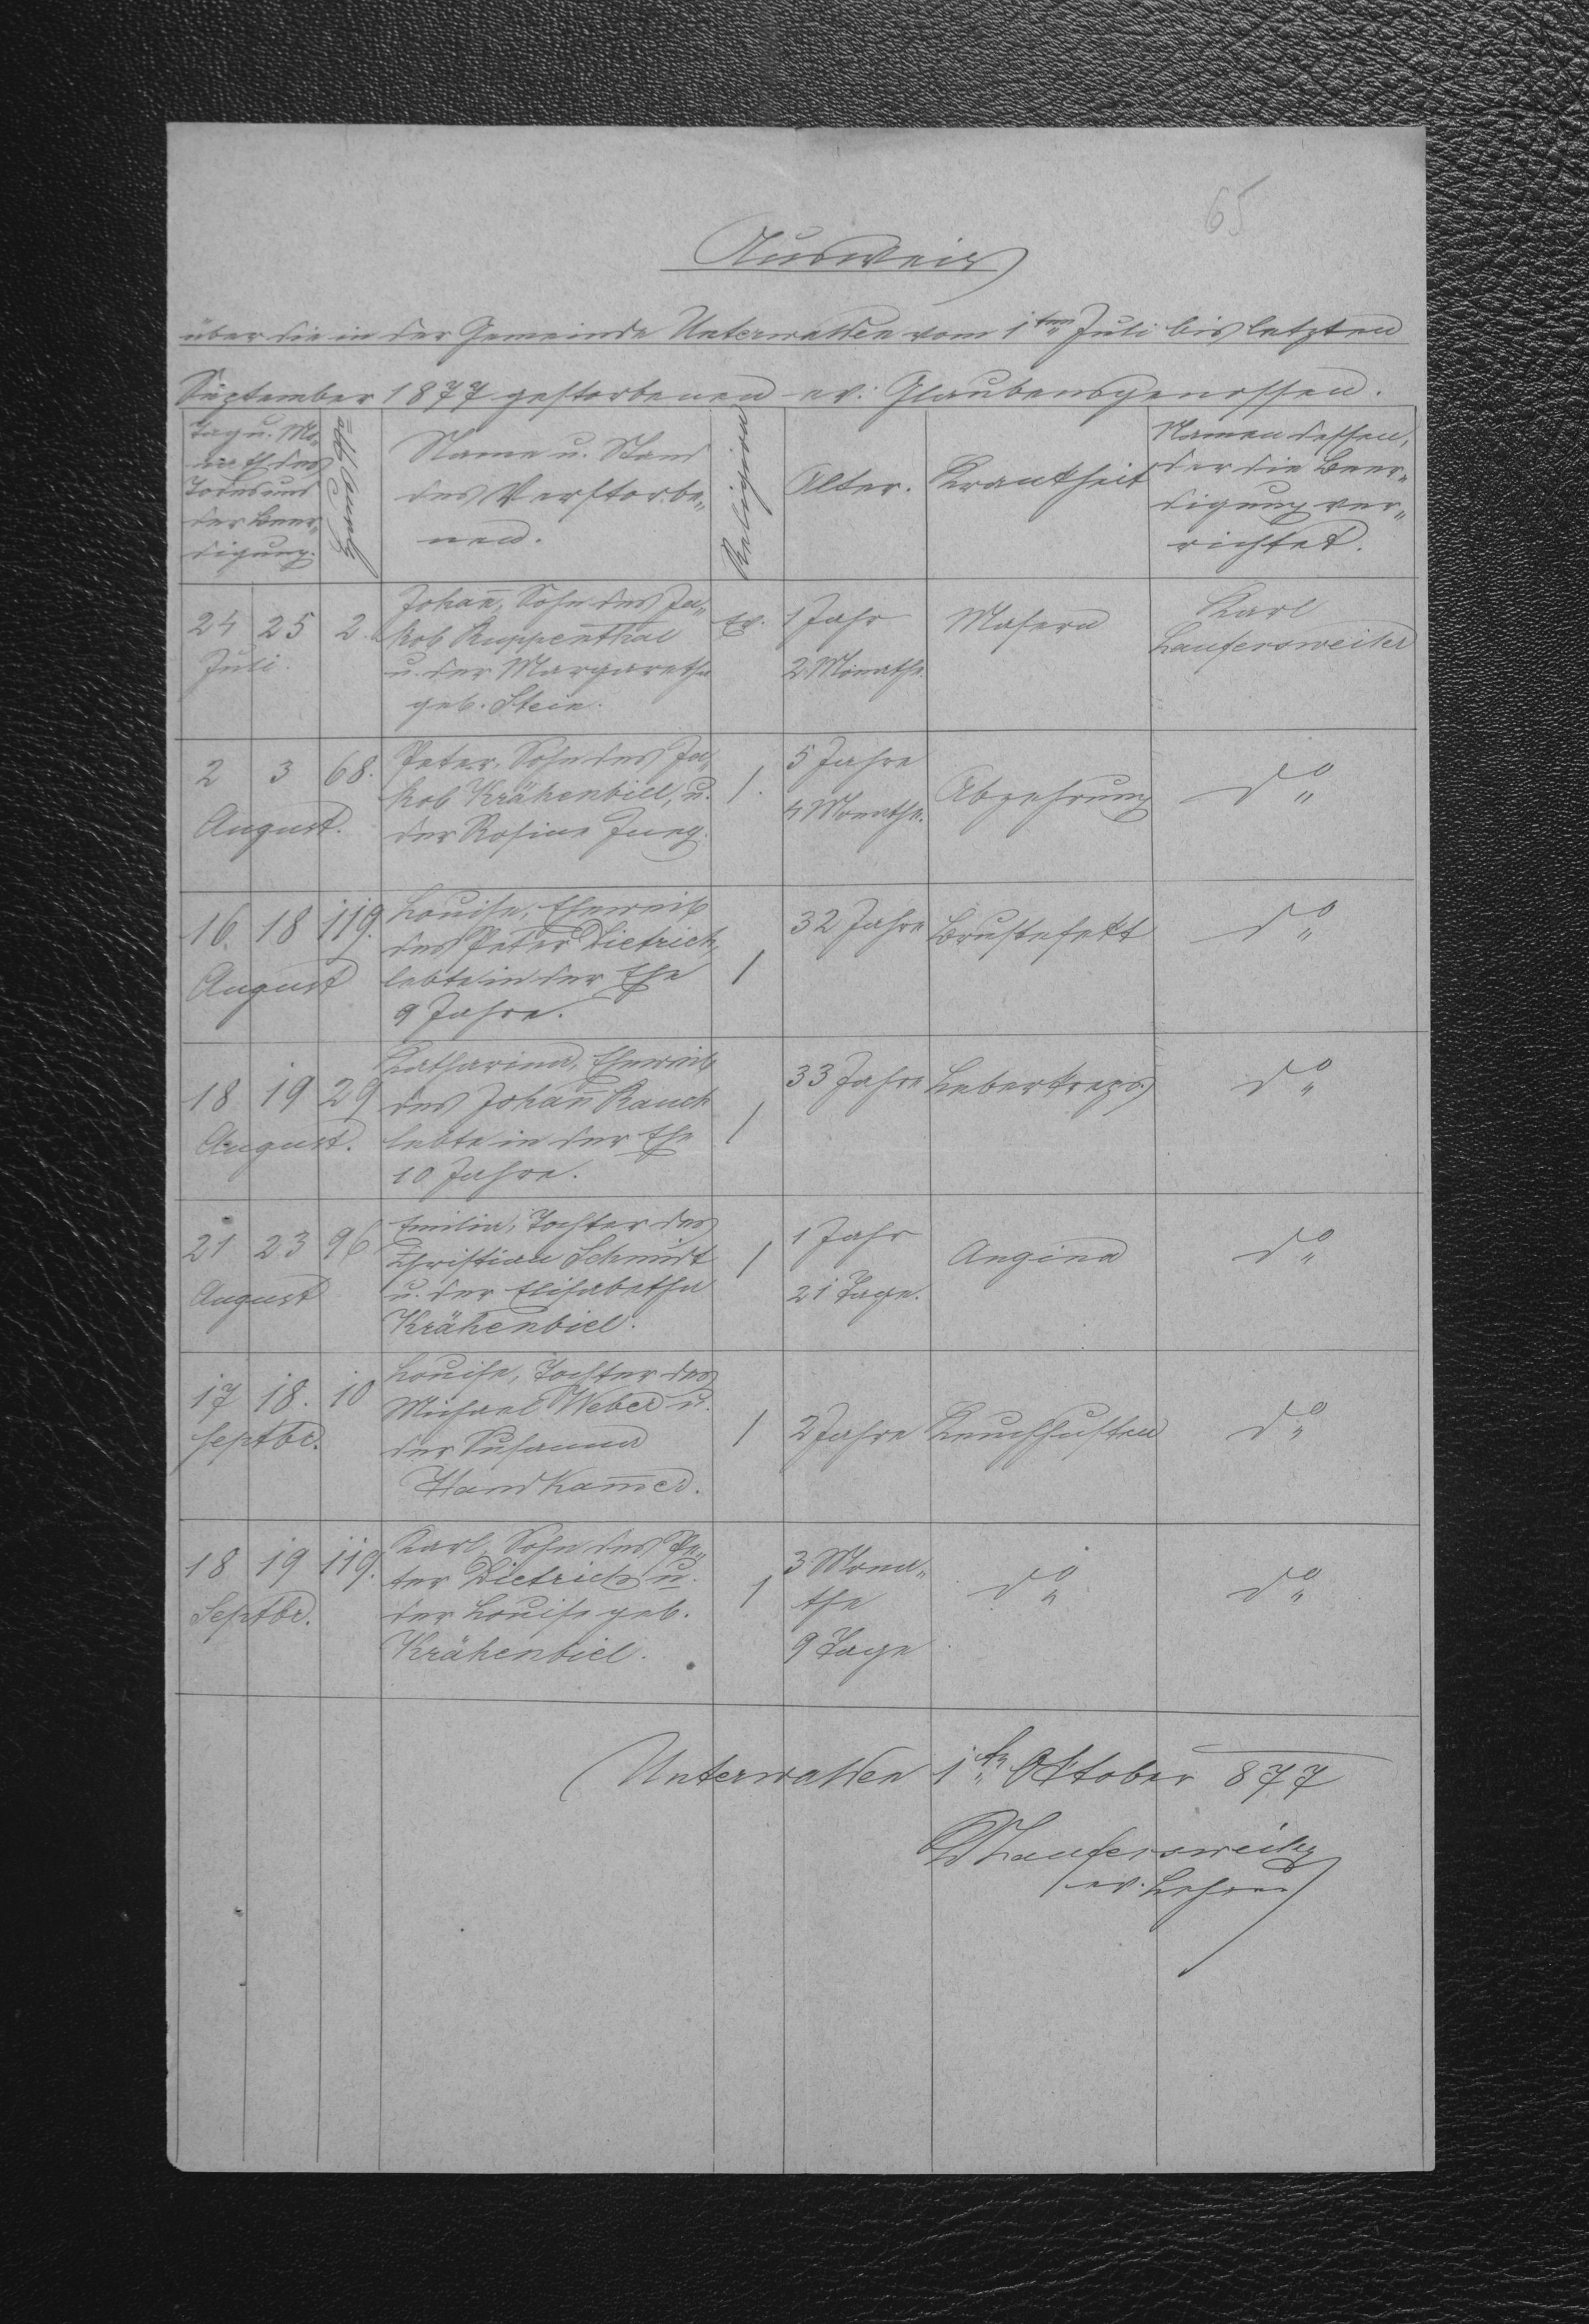 65
Ausweis
über die in der Gemeinde Unterwalden vom 1ten Juli bis letzten
September 1877 gestorbenen ev: Glaubensgenossen.
Tag u. Mo-
nath des
Todes und
der Beer„
digung.
Name u. Stand
des Verstorbe„
nen.
Religion
Alter.
Krankheit
Namen dessen,
der die Beer„
digung ver„
richtet.
24 25 2.
Juli.
Johañ, Sohn des Ja„
kob Ruppenthal
u. der Margaretha
geb. Stein.
Ev.
1 Jahr
2 Monathe.
Masern
Karl
Laufersweiler
2 3 68.
August.
Peter, Sohn des Ja„
kob Krähenbiel, u.
der Rosina Jung.
/.
5 Jahre
4 Monathe.
Abzehrung
do„
16. 18 119.
August
Louise, Eheweib
des Peter Dietrich,
lebte in der Ehe
9 Jahre.
/
32 Jahre
do„
18 19 29
August.
Katharina, Eheweib
des Johañ Rauch
lebte in der Ehe
10 Jahre.
/
33 Jahre
do„
21 23 96
August
Emilia, Tochter des
Christian Schmidt
u. der Elisabetha
Krähenbiel.
/
1 Jahr
21 Tage.
Angina
do„
17 18. 10
Septbr.
Louise, Tochter des
Michael Weber u.
der Susanna
Handkam̄er.
/
2 Jahre
Keuchhusten
do„
18 19 119.
Septbr.
Karl, Sohn des Pe„
ter Dietrich u.
der Louise geb.
Krähenbiel.
/
3 Mona„
the
9 Tage
do„
do„
Unterwalden 1tn Oktober 877
Laufersweiler
ev. Lehrer